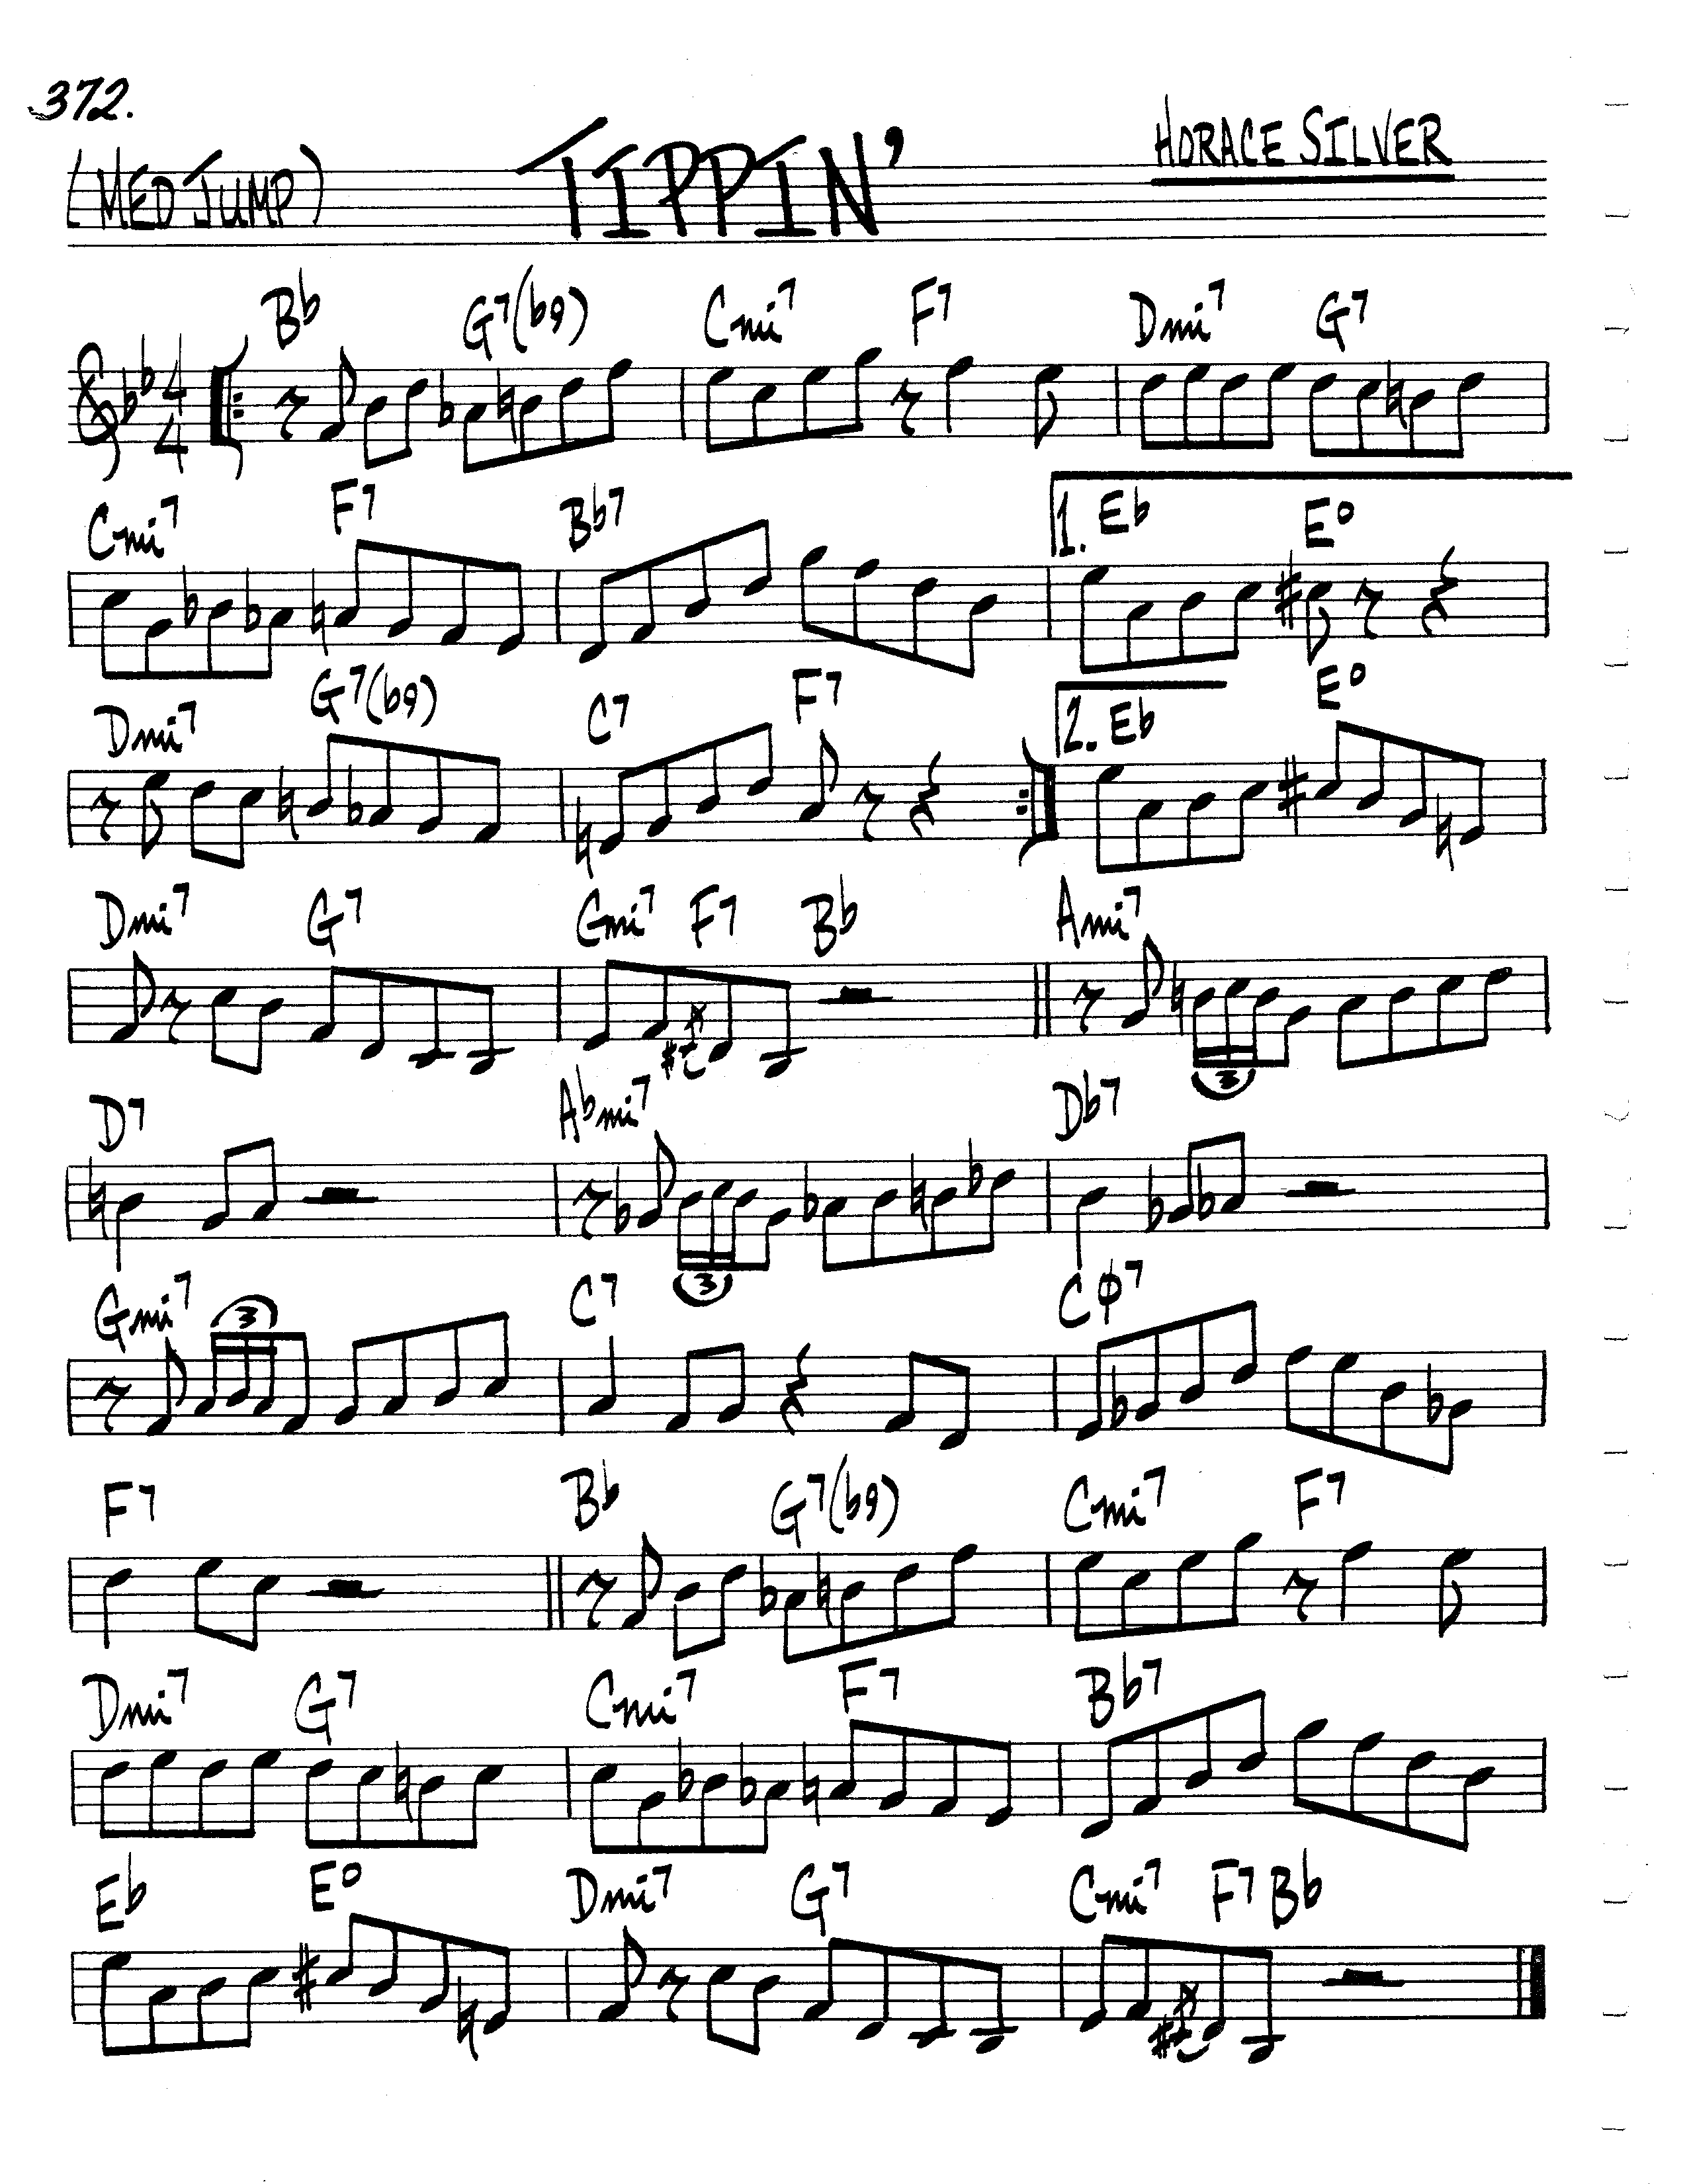 372.
(MED JUMP) TIPPIN' HORACE SILVER
Bb G7(b9) Cmi7 F7 Dmi7 G7
4 4
Cmi7 F7 Bb7 1. Eb E°
Dmi7 G7(b9) C7 F7 2. Eb E°
Dmi7 G7 Cmi7 F7 Bb Ami7
3
D7 Abmi7 Db7
3
Gmi7 3 C7 CØ7
F7 Bb G7(b9) Cmi7 F7
Dmi7 G7 Cmi7 F7 Bb7
Eb E° Dmi7 G7 Cmi7 F7 Bb